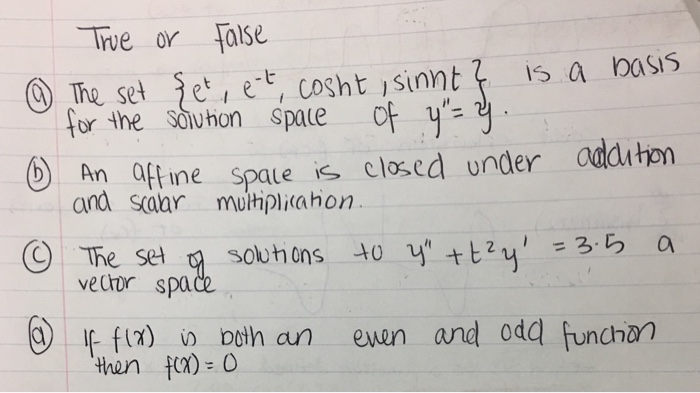 True or False
(a) The set {eᵗ, e⁻ᵗ, cosht, sinht} is a basis
for the solution space of y" = y.
(b) An affine space is closed under addition
and scalar multiplication.
(c) The set of solutions to y" + t²y' = 3.5 a
vector space
(d) If f(x) is both an even and odd function
then f(x) = 0